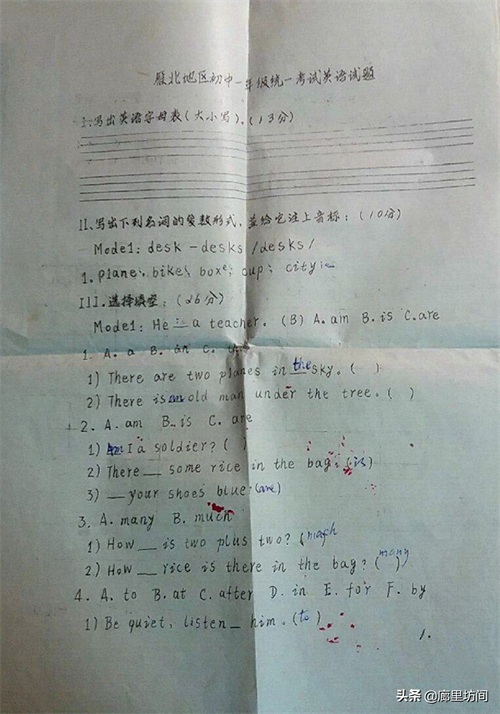 雁北地区初中一年级统一考试英语试题
I.写出英语字母表(大小写)。(13分)
II.写出下列名词的复数形式,并给它注上音标:(10分)
Model: desk - desks /desks/
1. plane, bike, box, cup, city
III.选择填空:(26分)
Model: He is a teacher. (B) A. am B. is C. are
1. A. a B. an C. the
1) There are two planes in the sky. ( )
2) There is an old man under the tree. ( )
2. A. am B. is C. are
1) Am I a soldier? ( )
2) There __ some rice in the bag. (is)
3) __ your shoes blue (are)
3. A. many B. much
1) How __ is two plus two? (
2) How __ rice is there in the bag? (many)
4. A. to B. at C. after D. in E. for F. by
1) Be quiet, listen __ him. (to)
1.
头条 @廊里坊间